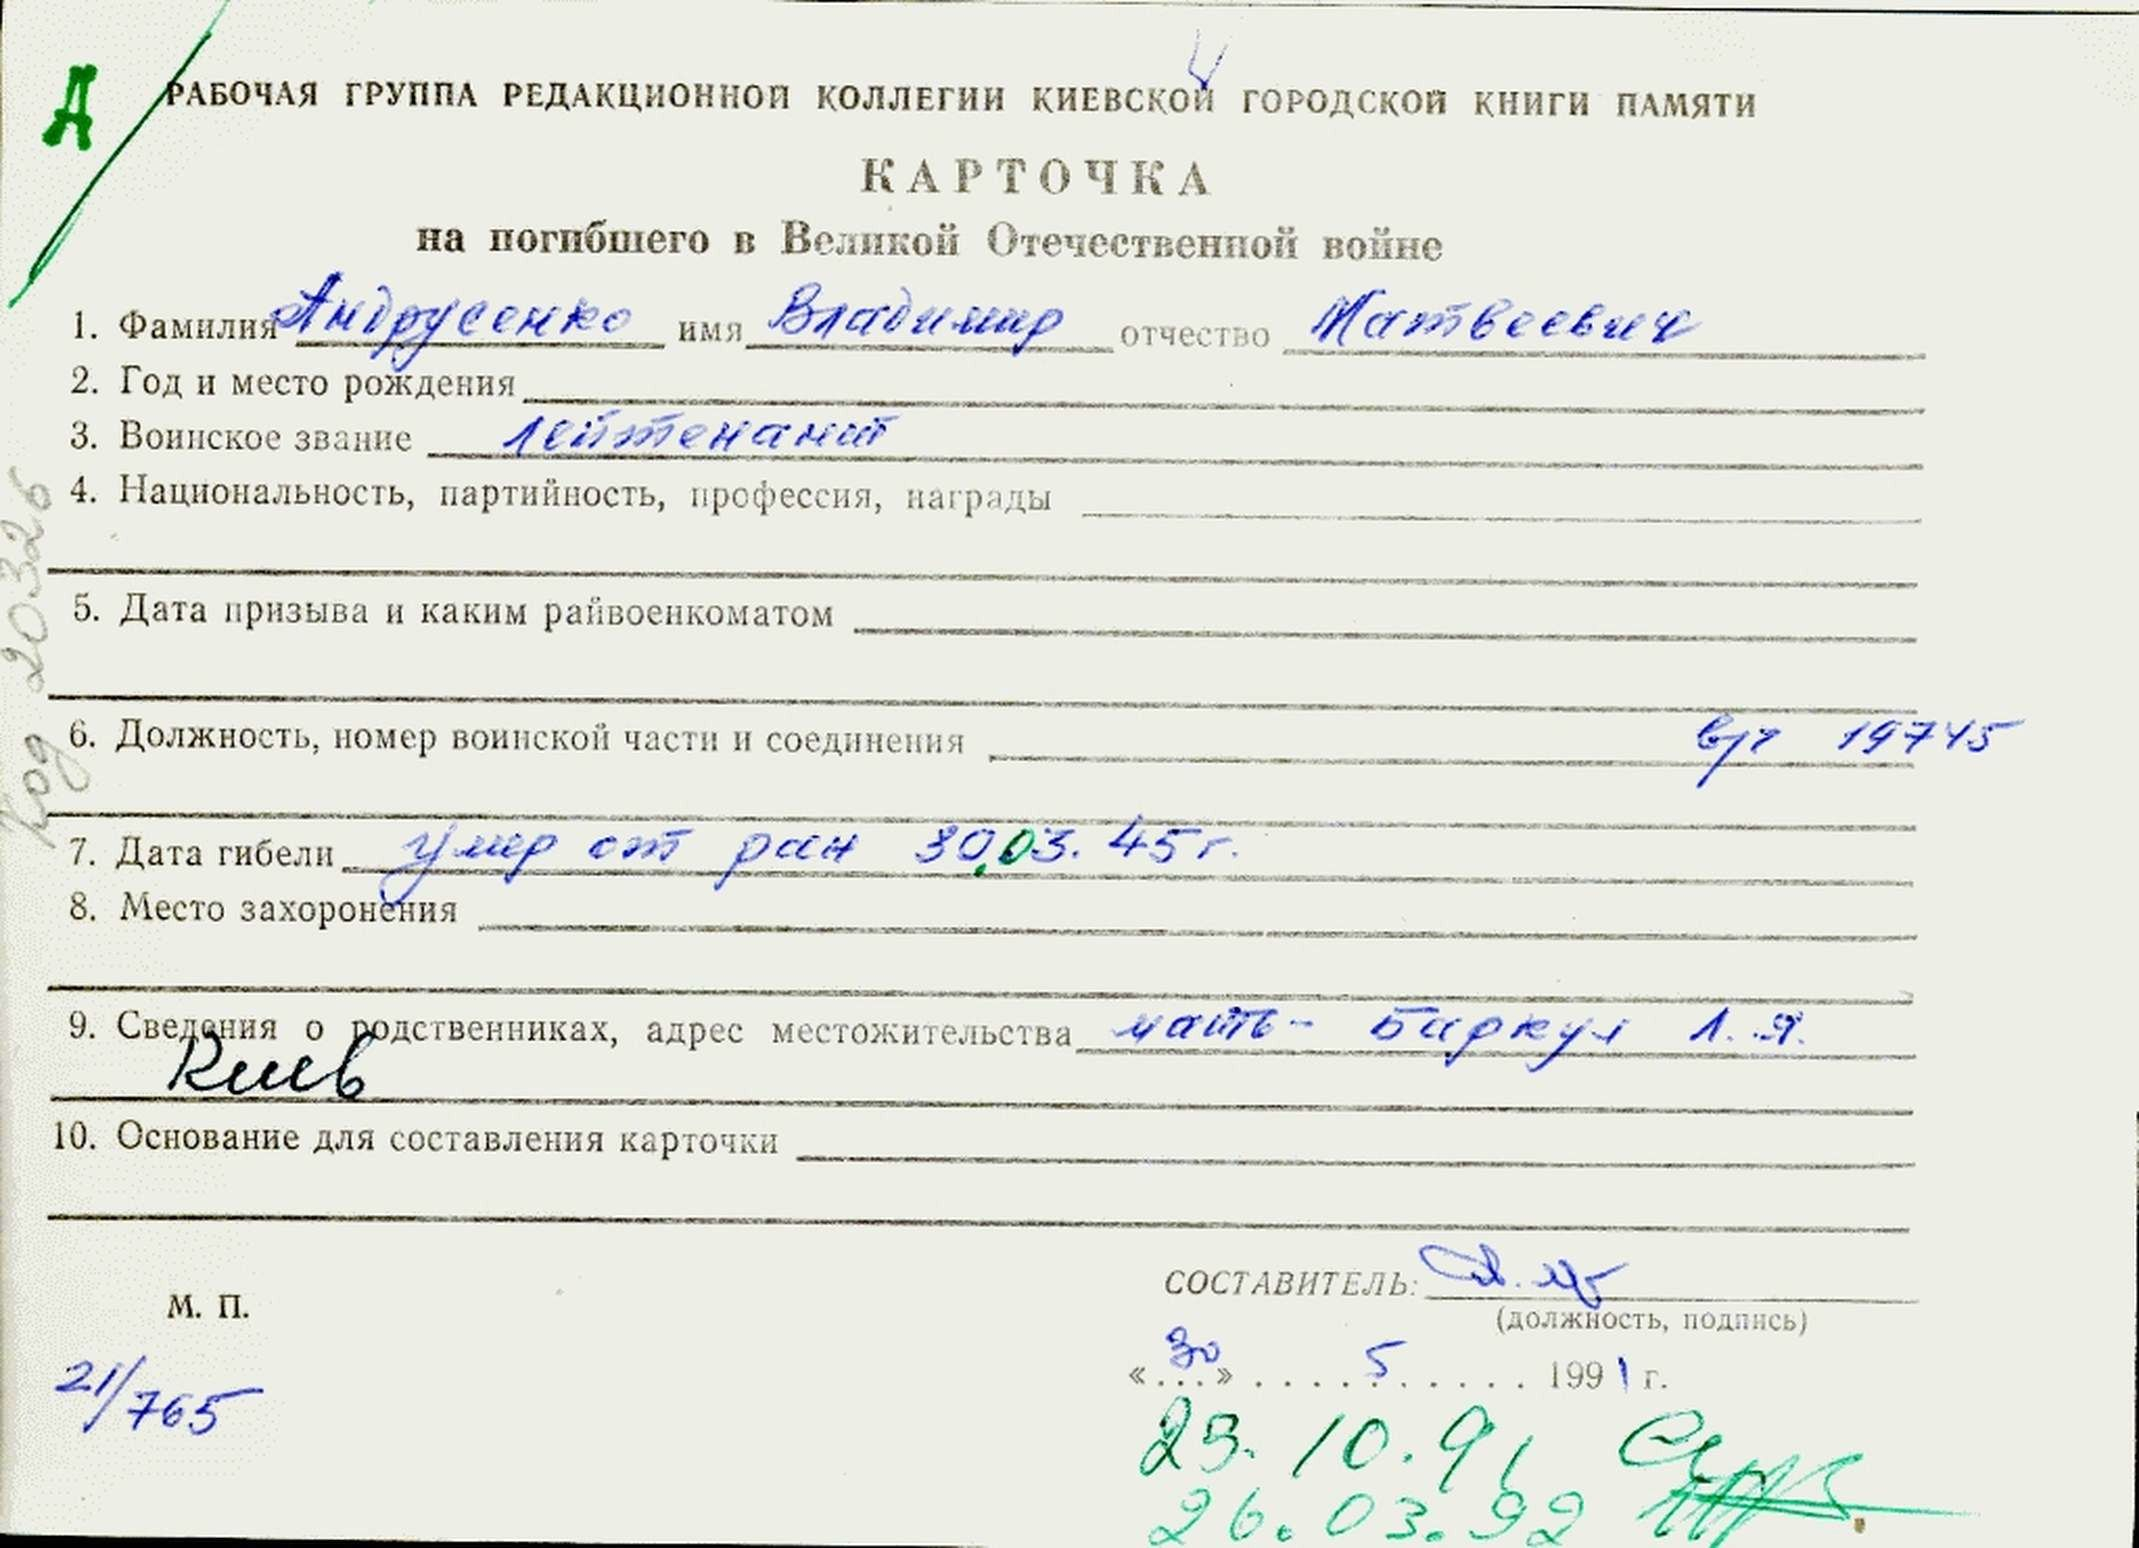 Д
РАБОЧАЯ ГРУППА РЕДАКЦИОННОЙ КОЛЛЕГИИ КИЕВСКОЙ ГОРОДСКОЙ КНИГИ ПАМЯТИ
КАРТОЧКА
на погибшего в Великой Отечественной войне
1. Фамилия Андрусенко имя Владимир отчество Матвеевич
2. Год и место рождения
3. Воинское звание лейтенант
4. Национальность, партийность, профессия, награды
5. Дата призыва и каким райвоенкоматом
6. Должность, номер воинской части и соединения в/ч 19745
7. Дата гибели умер от ран 30.03.45г.
8. Место захоронения
9. Сведения о родственниках, адрес местожительства мать - Баркул Л. Я.
Киев
10. Основание для составления карточки
СОСТАВИТЕЛЬ:
(должность, подпись)
М. П.
«30» 5 1991 г.
21/765
29.10.91
26.03.92
Код 20326